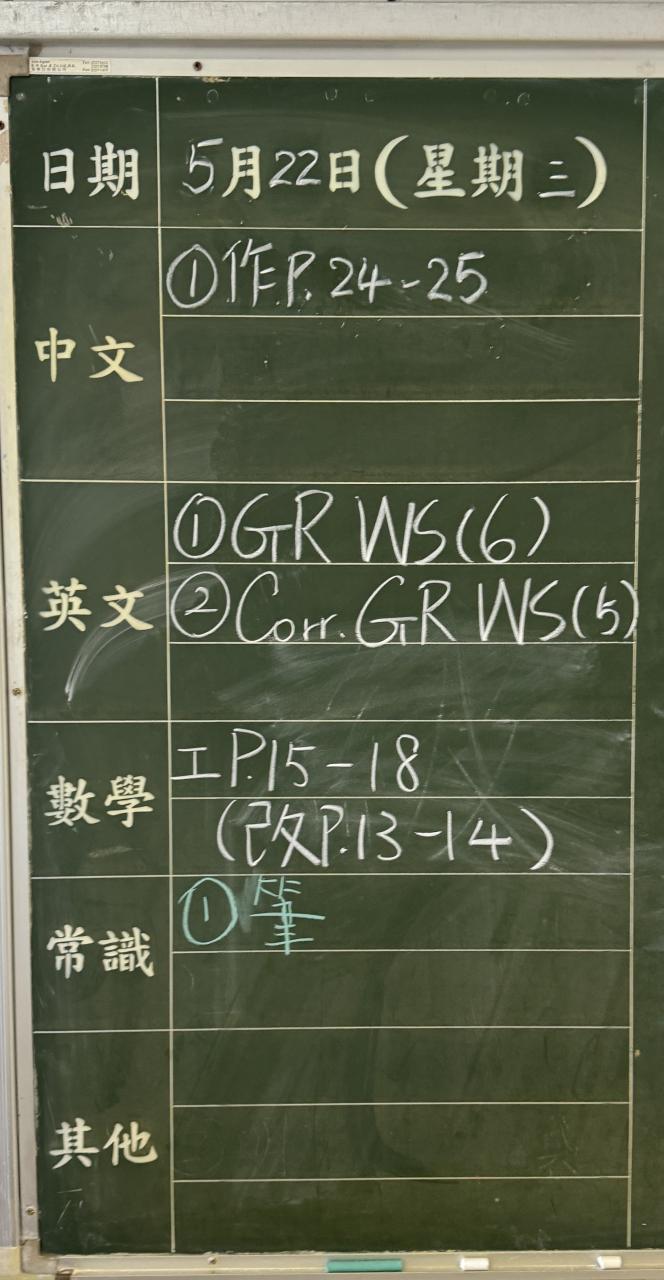 日期 5月22日(星期三)
中文 ①作P.24-25
英文 ①GR WS(6)
②Corr.GR WS(5)
數學 工P.15-18
(改P.13-14)
常識 ①筆
其他